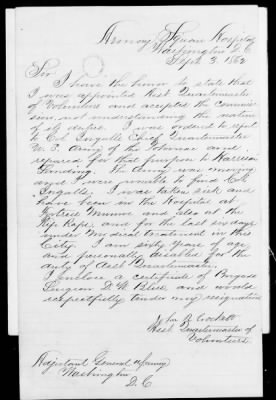 Armory Square Hospital
Washington D.C.
Sept. 3. 1862
Sir
I have the honor to state that
I was appointed Asst Quartermaster
of Volunteers and accepted the commis-
sion, not understanding the nature
of its duties. I was ordered to report
to Col Ingalls Chief Quartermaster
U.S. Army of the Potomac and
repaired for that purpose to Harrison
Landing. The Army was moving
and I was unable to find Col
Ingalls. I was taken sick and
have been in the Hospital at
Fortress Munroe and also at the
Rip Raps, and for the last ten days
under Medical treatment in this
City. I am sixty years of age
and personally disabled for the
duty of Asst Quartermaster.
I enclose a certificate of Brigade
Surgeon D. W. Bliss and would
respectfully tender my resignation
Jno. Cockett
Asst Quartermaster of
Volunteers
Adjutant General of Army
Washington
D.C